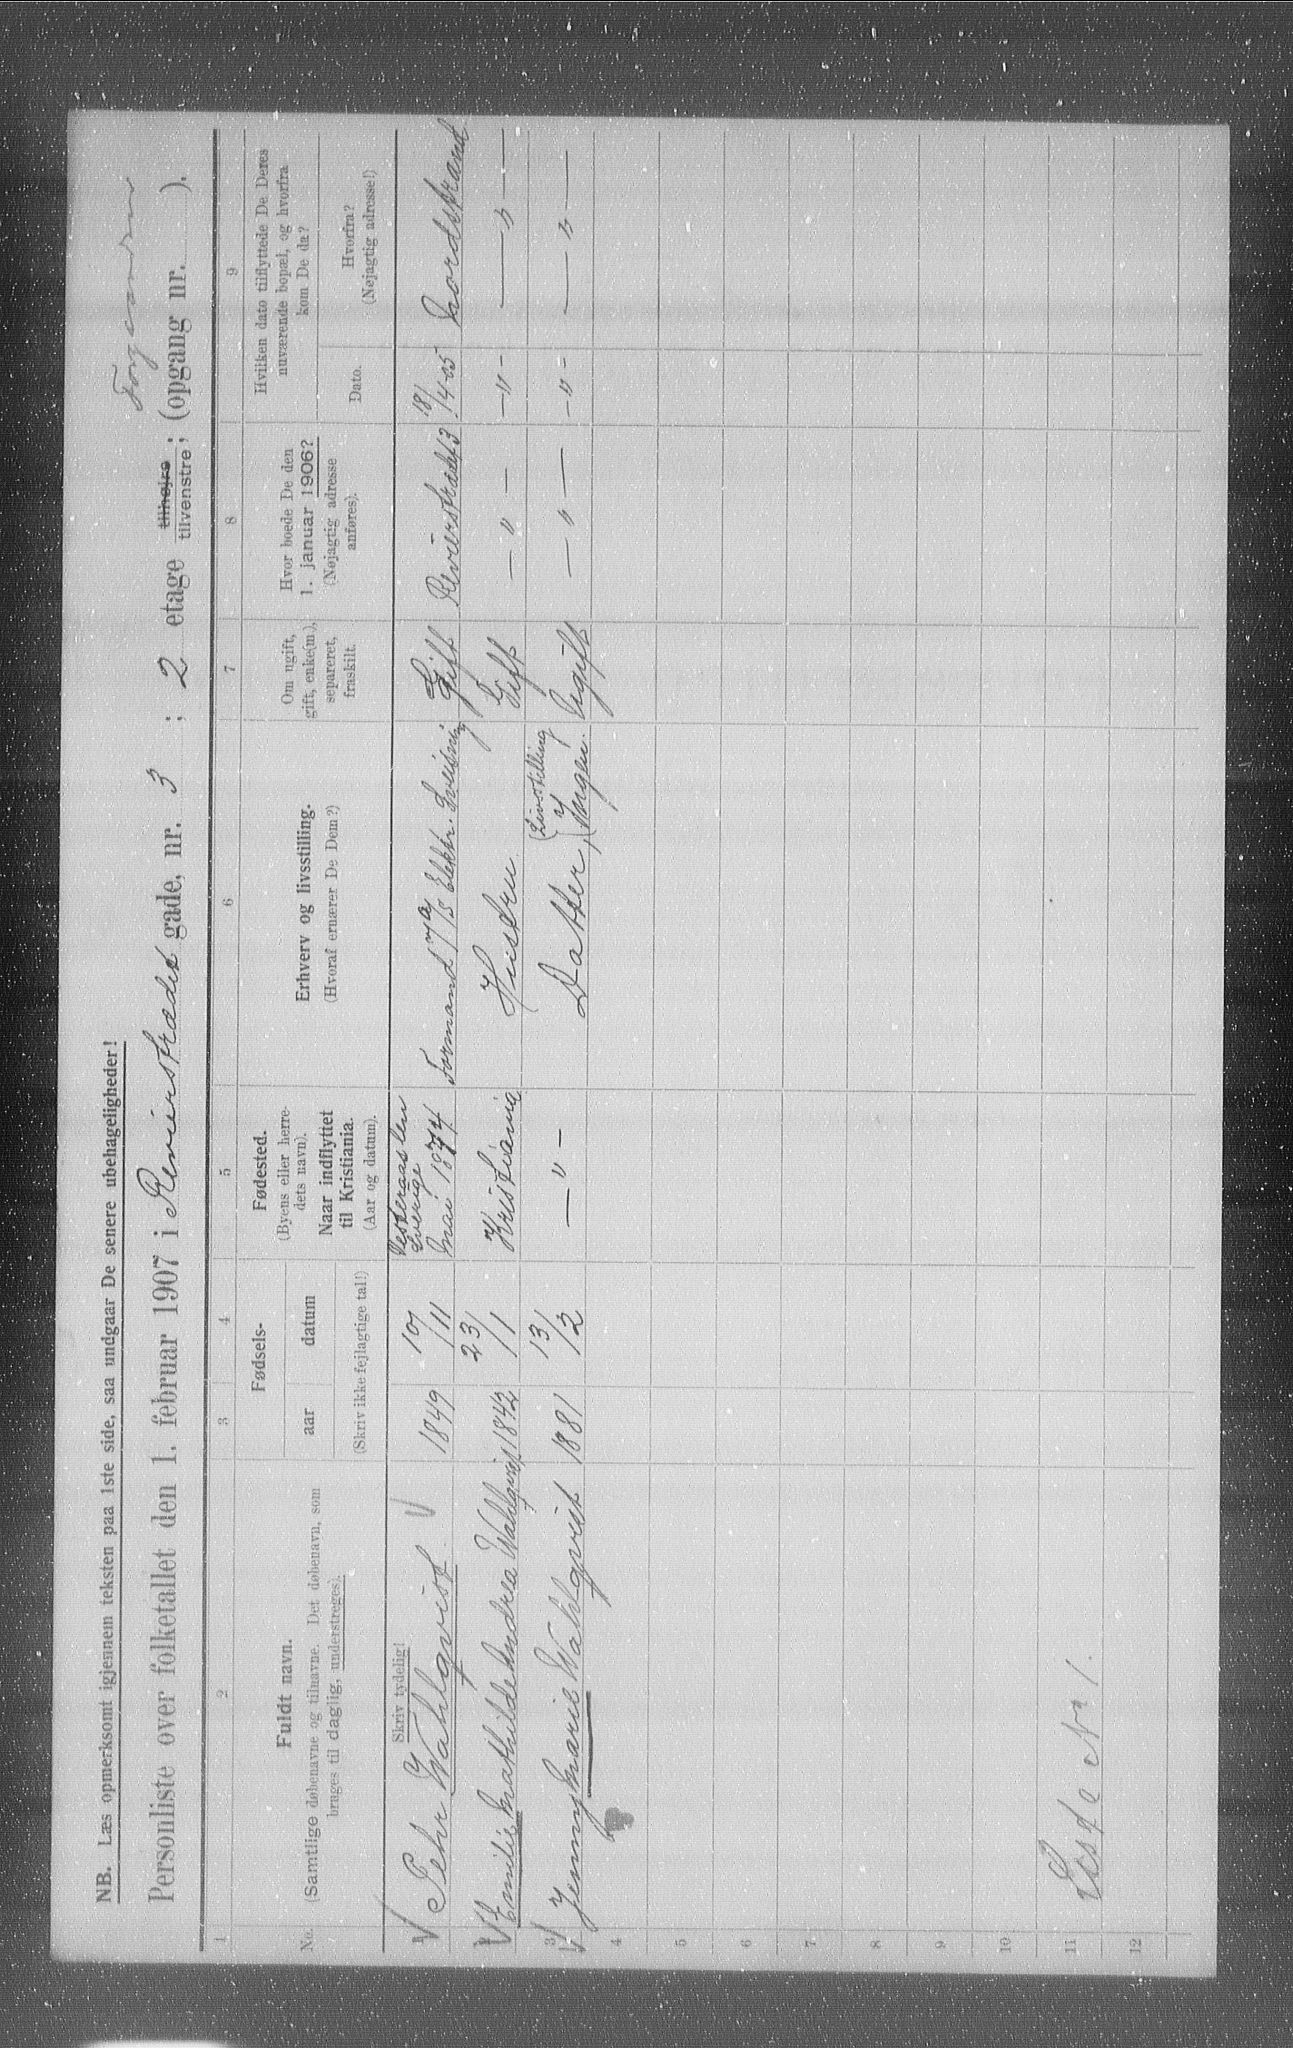 NB. Læs opmerksomt igjennem teksten paa 1ste side, saa undgaar De senere ubehageligheder!
Personliste over folketallet den 1. februar 1907 i Revierstrædet gade, nr. 3 ; 2 etage tilhøjre tilvenstre; (opgang nr. ).
1
2
3
4
5
6
7
8
9
No.
Fuldt navn.
(Samtlige døbenavne og tilnavne. Det døbenavn, som
bruges til daglig, understreges).
Skriv tydelig!
Fødsels-
aar
datum
(Skriv ikke fejlagtige tal!)
Fødested.
(Byens eller herre-
dets navn).
Naar indflyttet
til Kristiania.
(Aar og datum).
Erhverv og livsstilling.
(Hvoraf ernærer De Dem?)
Om ugift,
gift, enke(m.),
separeret,
fraskilt.
Hvor boede De den
1. januar 1906?
(Nøjagtig adresse
anføres).
Hvilken dato tilflyttede De Deres
nuværende bopæl, og hvorfra
kom De da?
Dato.
Hvorfra?
(Nøjagtig adresse!)
1 Pehr Wahlqvist 1849 10/11 Vesteraas len Sverige Mai 1874 Formand Elektr. Gift Revierstrædet 3 18/4 05 Nordstrand
2 Emilie Mathilde Andrea Wahlqvist 1842 23/1 Kristiania Hustru Gift — " — - " - — " —
3 Jenny Marie Wahlqvist 1881 13/2 — " — Datter, (Livsstilling Ingen. Ugift — " — - " - — " —
4
5
6
7
8
9
10
11
12
Liste No 1.